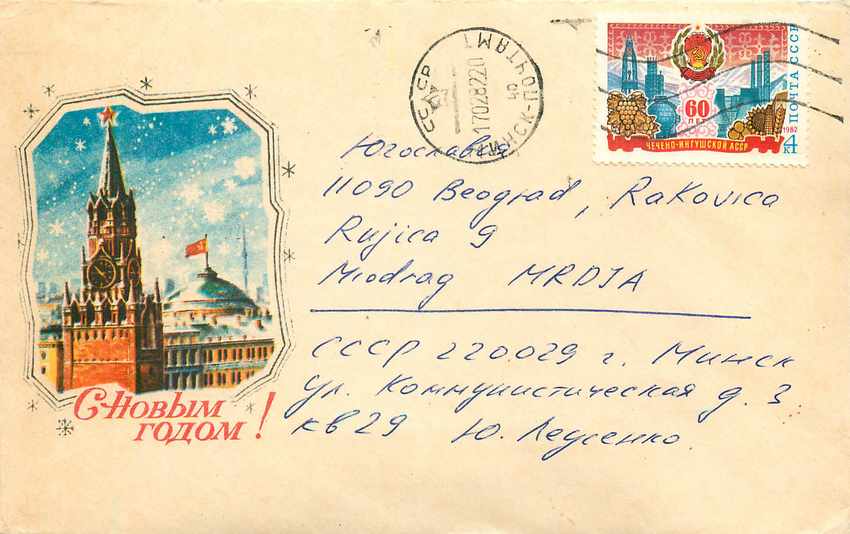 СССР
МИНСК-ПОЧТАМТ
170282220
04
60
ЛЕТ
ЧЕЧЕНО-ИНГУШСКОЙ АССР
ПОЧТА СССР
1982
4
к
Югославия
11090 Beograd, Rakovica
Rujica 9
Miodrag MRDJA
СССР 220029 г. Минск
ул. Коммунистическая д. 3
кв 29 Ю.
С Новым
годом!